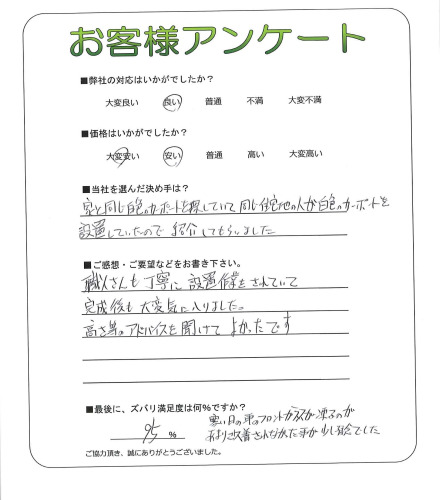 お客様アンケート
■弊社の対応はいかがでしたか？
大変良い 良い 普通 不満 大変不満
■価格はいかがでしたか？
大変安い 安い 普通 高い 大変高い
■当社を選んだ決め手は？
家と同じ白色のカーポートを探していて 同じ住宅地の人が白色のカーポートを
設置していたので 紹介してもらいました
■ご感想・ご要望などをお書き下さい。
職人さんも丁寧に設置作業をされていて
完成後も大変気に入りました。
高さ等のアドバイスを聞けて よかったです
■最後に、ズバリ満足度は何％ですか？
95 ％
寒い日の車のフロントガラスが凍るのが
あまり改善されなかった事が少し残念でした
ご協力頂き、誠にありがとうございました。